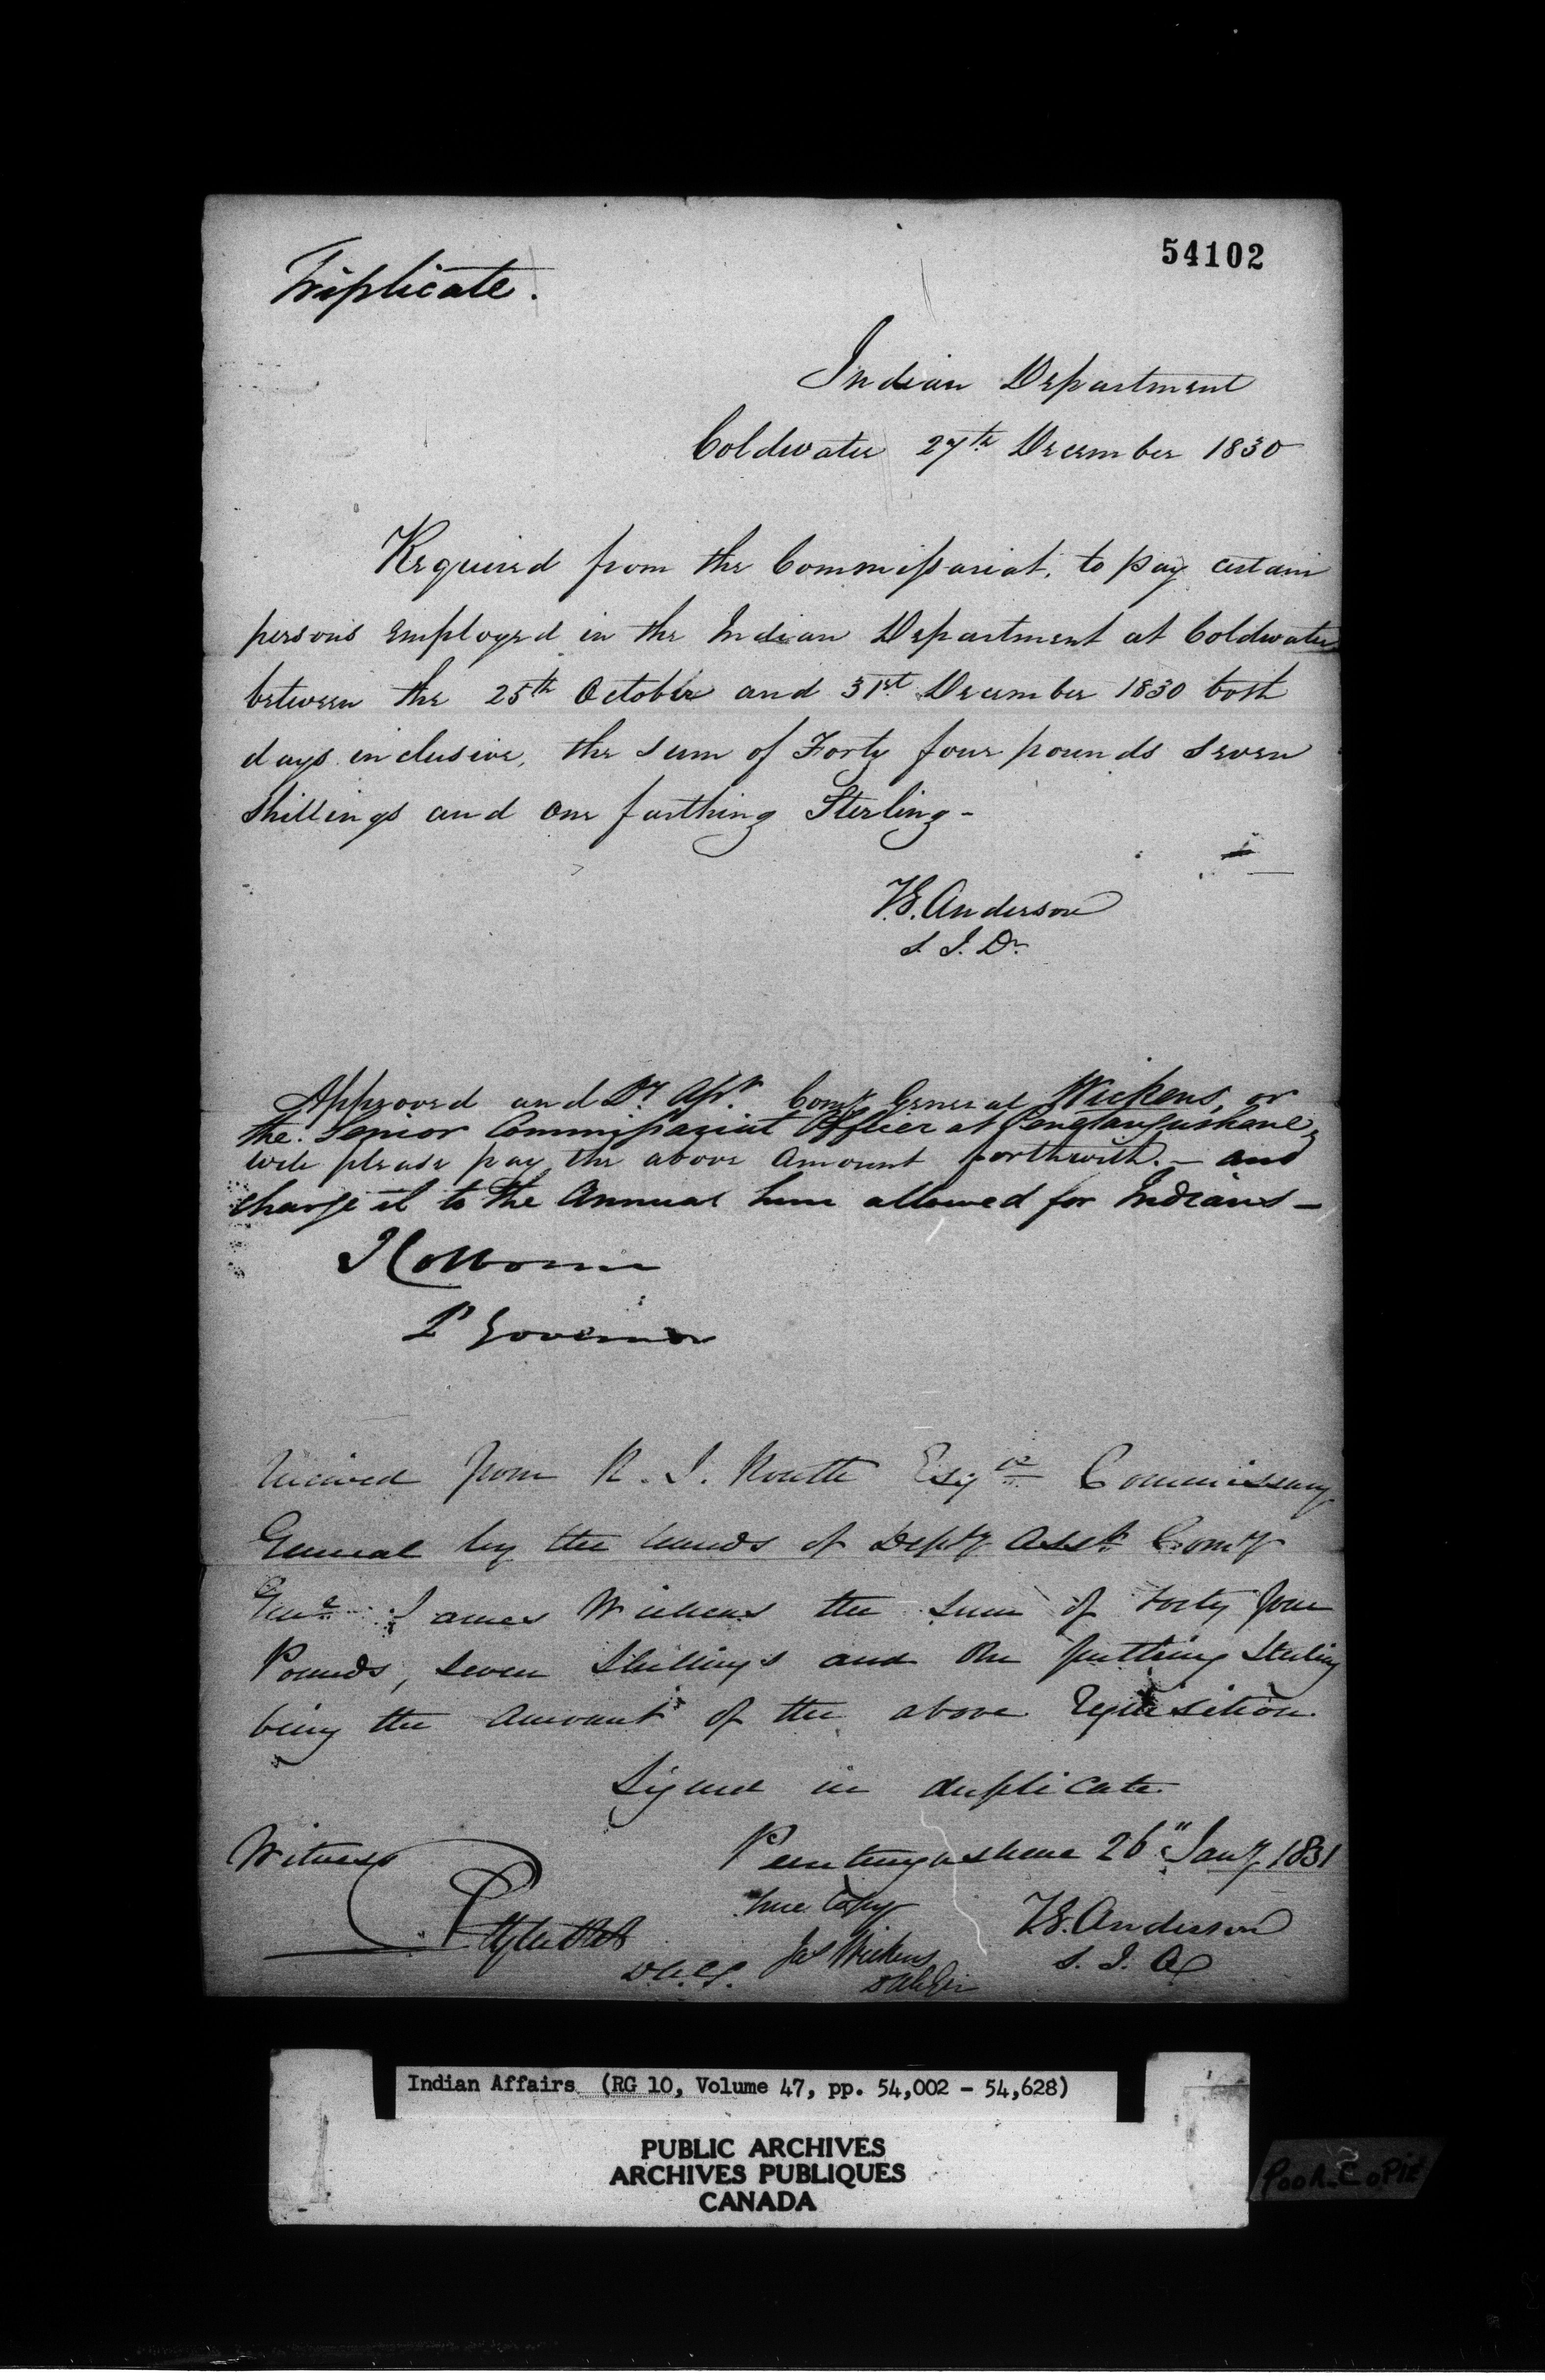 54102
Triplicate.
Indian Department
Coldwater 27th December 1830
Required from the Commissariat, to pay certain
persons employed in the Indian Department at Coldwater
between the 25th October and 31st December 1830 both
days inclusive, the sum of Forty four pounds seven
Shillings and one farthing Sterling -
T.G. Anderson
S. I. D.
Approved and Dy Asst. Comy General Wickens, or
the Senior Commissariat Officer at Penetanguishene,
will please pay the above amount forthwith. - and
charge it to the Annual Sum allowed for Indians -
J Colborne
Lt Governor
Received from R. I. Routh Esqre Commissary
General by the hands of Depty Asst Comy
Genl James Wickens the sum of Forty four
Pounds, seven Shillings and One farthing Sterling
being the Amount of the above requisition.
Signed in duplicate
Witness
Penetanguishene 26" Jany 1831
true Copy
T.G. Anderson
D.A.C.G. Jas Wickens
S. I. A
Indian Affairs (RG 10, Volume 47, pp. 54,002 - 54,628)
PUBLIC ARCHIVES
ARCHIVES PUBLIQUES
CANADA
POOR COPIE